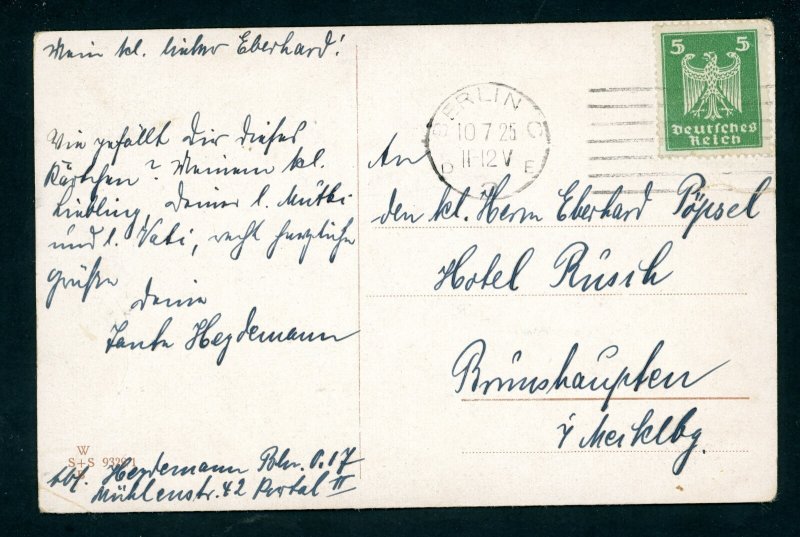 Mein kl. lieber Eberhard!
Wie gefällt Dir dieses
Kärtchen? Meinem kl.
Liebling, Deiner l. Mutti
und l. Vati, recht herzliche
Grüße
Deine
Tante Heydemann
W
S+S 9329/1
Abs. Heydemann Bln. O.17
Mühlenstr. 42 Portal II
BERLIN C
10 7 25
11-12 V
D E
5 5
Deutsches
Reich
An
den kl. Herrn Eberhard Pöpsel
Hotel Rüsch
Brunshaupten
i/ Mecklbg.